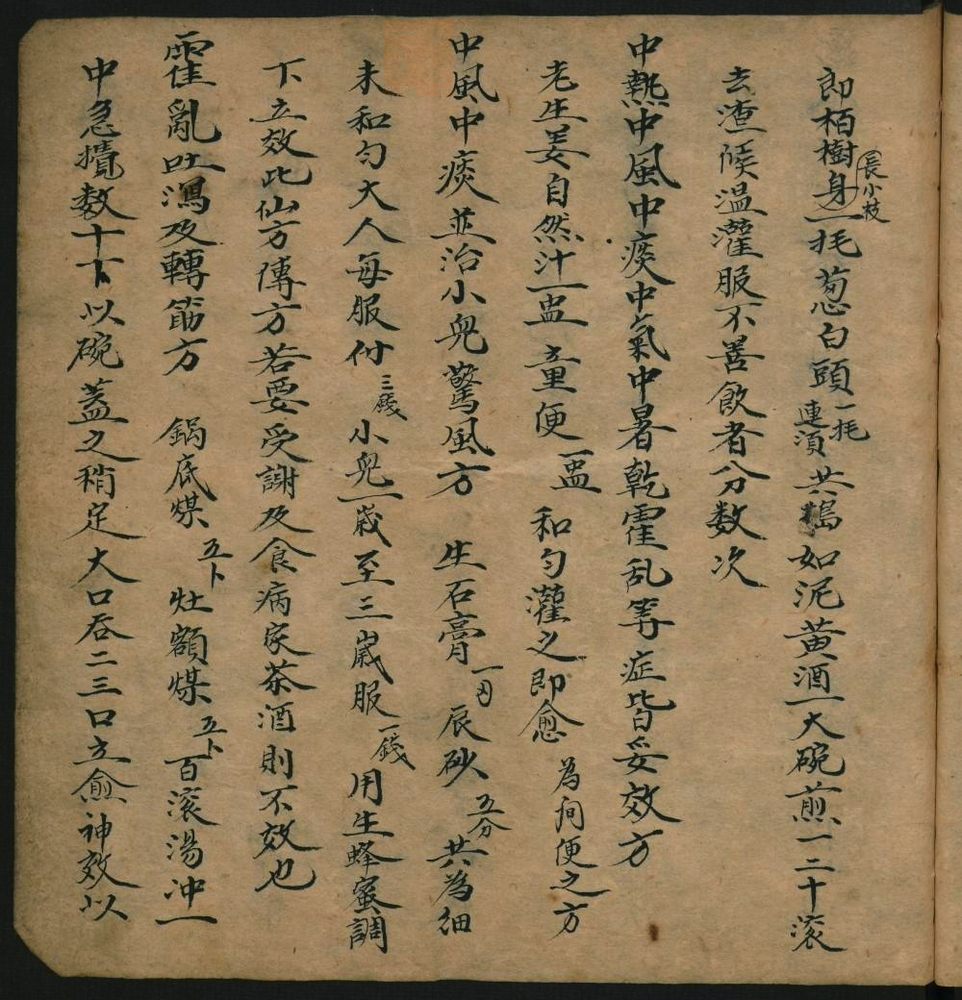 即栢樹身長小枝一托葱白頭連須一托共搗如泥黃酒一大碗煎一二十滚
去渣候温灌服不善飲者分数次
中熱中風中痰中氣中暑乾霍乱等症皆妥效方
老生姜自然汁一盅童便一盅和匀灌之即愈為甸便之方
中風中痰並治小兒驚風方 生石膏一兩辰砂五分共為細
末和匀大人每服付三錢小兒一歲至三歲服一錢用生蜂蜜調
下立效此仙方傳方若要受謝及食病家茶酒則不效也
霍亂吐瀉及轉筋方 鍋底煤五卜灶額煤五卜百滚湯冲一
中急攪数十下以碗蓋之稍定大口吞二三口立愈神效以